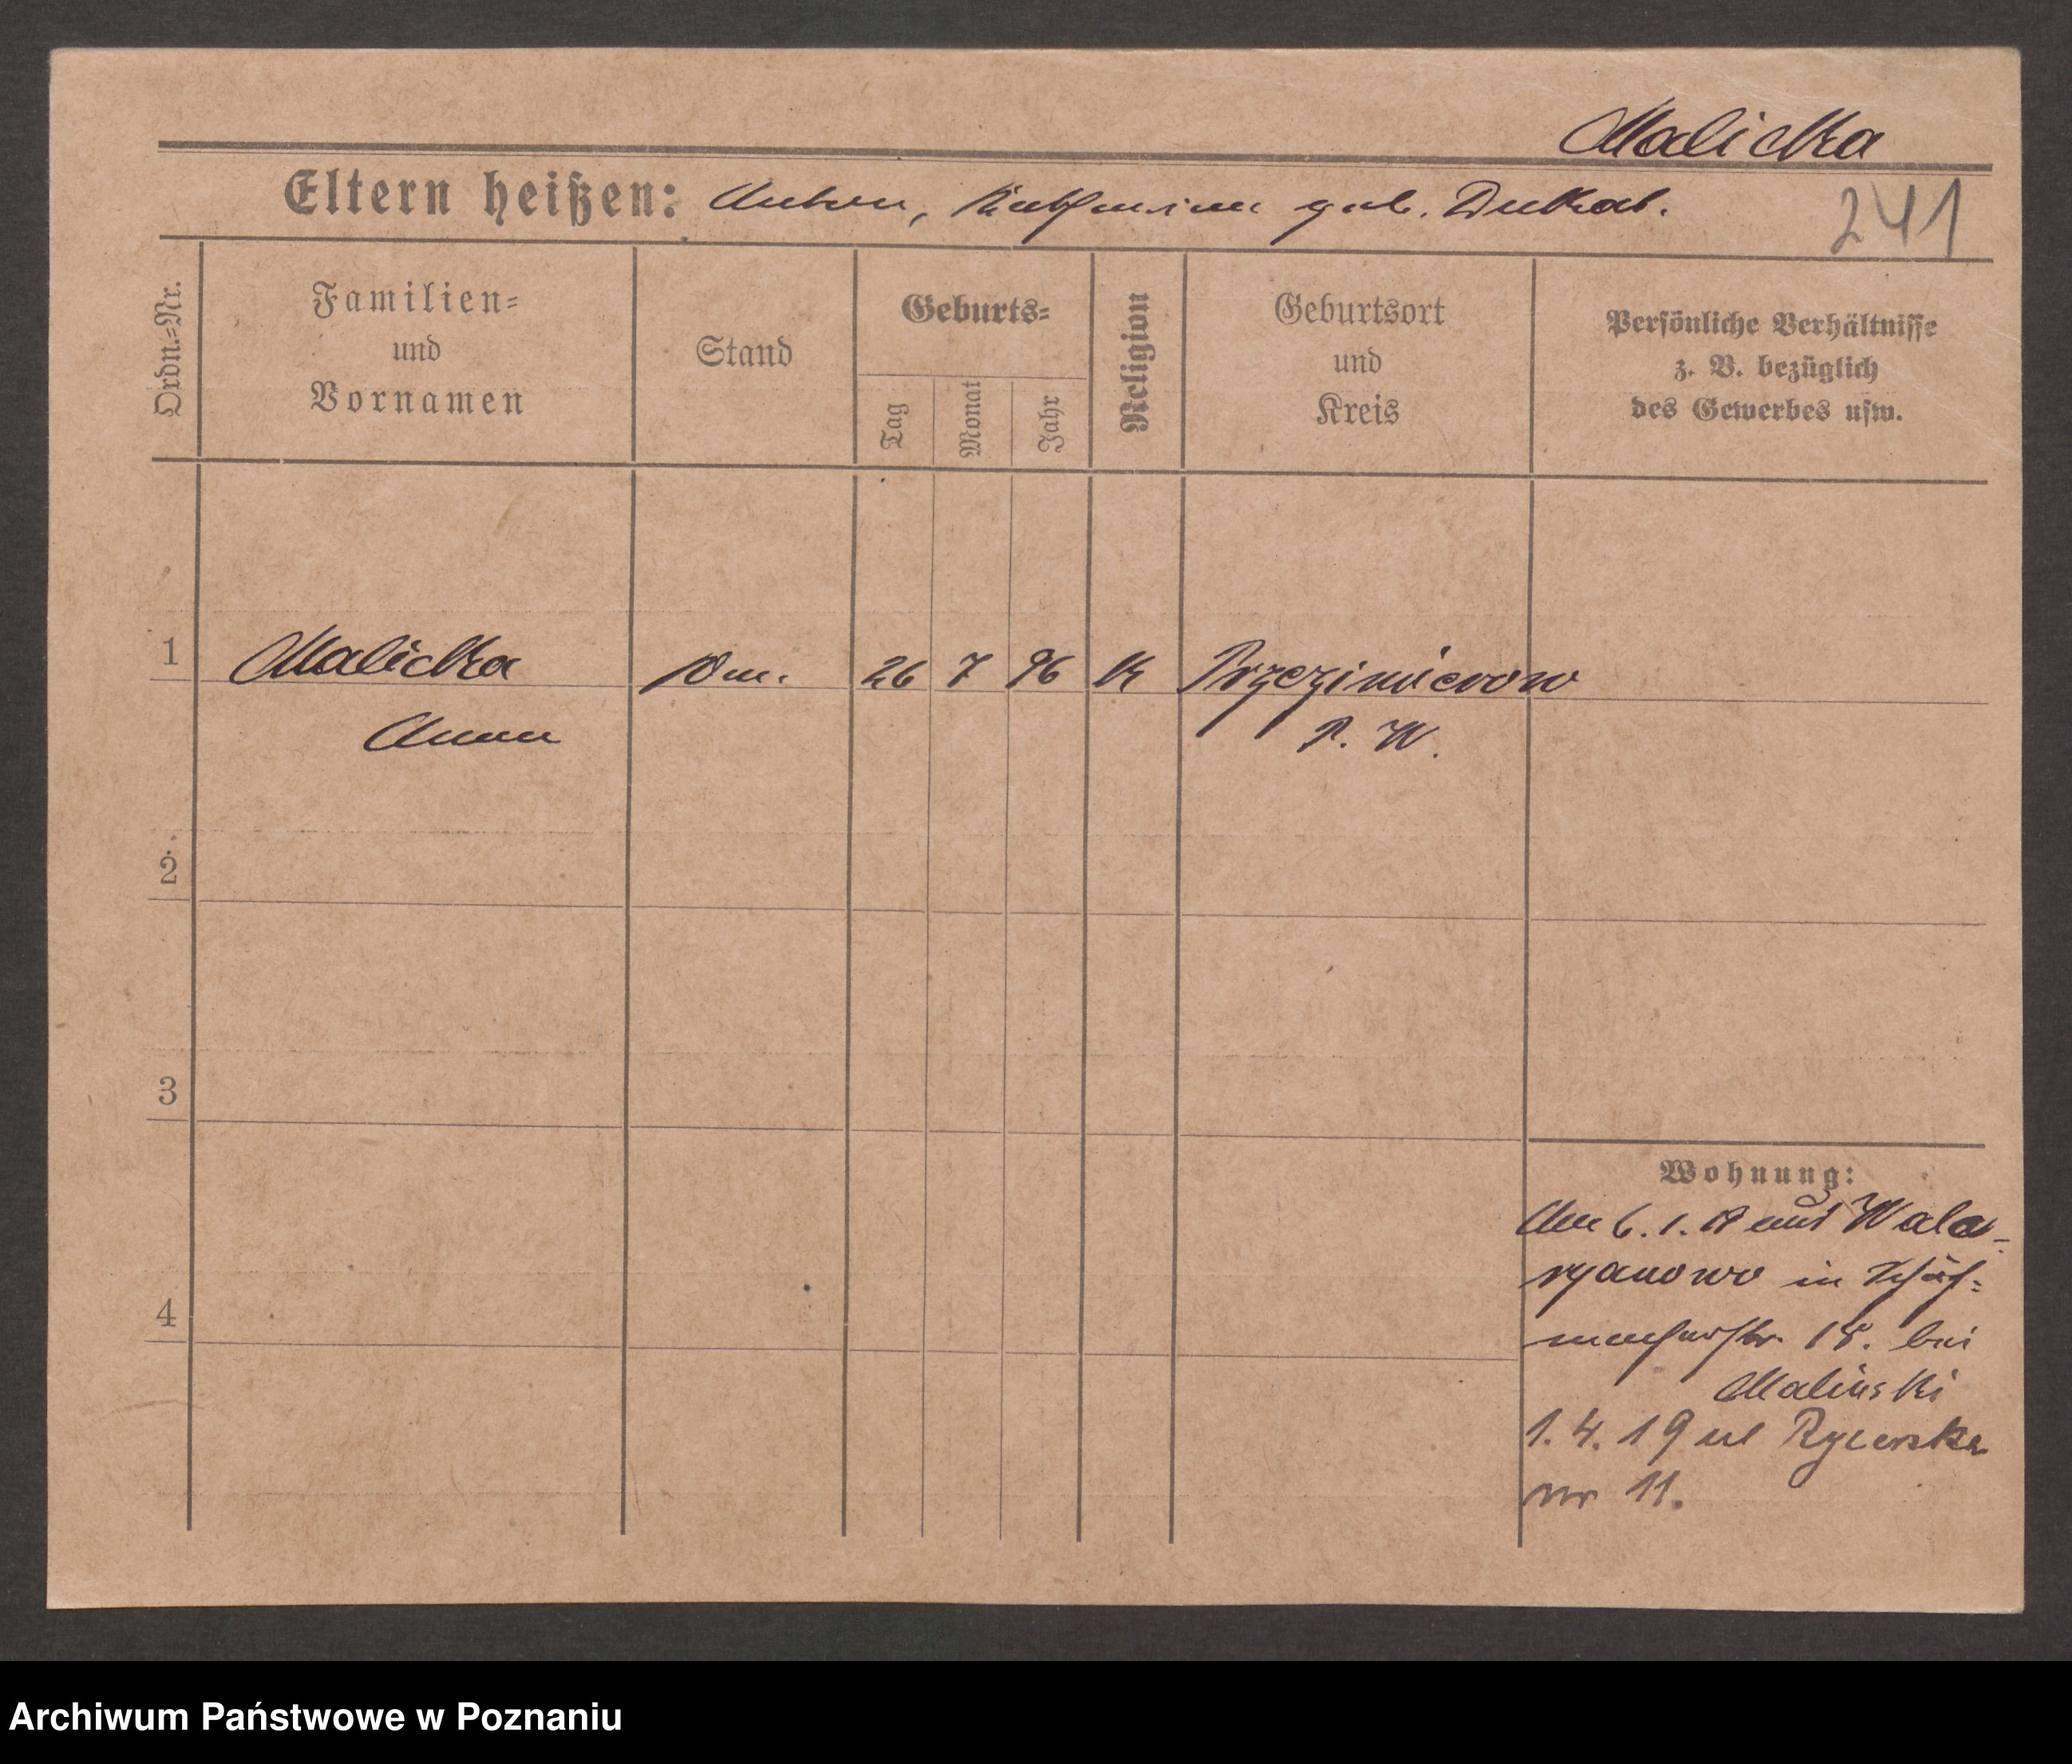 Malicka
Eltern heißen: Anton, Katharina geb. Dukat.
241
Ordn.=Nr.
Familien=
und
Vornamen
Stand
Geburts=
Tag
Monat
Jahr
Religion
Geburtsort
und
Kreis
Persönliche Verhältnisse
z. B. bezüglich
des Gewerbes usw.
1 Malicka 26 7 96 K Przezimierowo
Anna P. W.
2
3
4
Wohnung:
Am 6. 1. 19 aus Wala-
ryanowo in
18. bei
Malinski
1. 4. 19 ul Rycerska
nr 11.
Archiwum Państwowe w Poznaniu